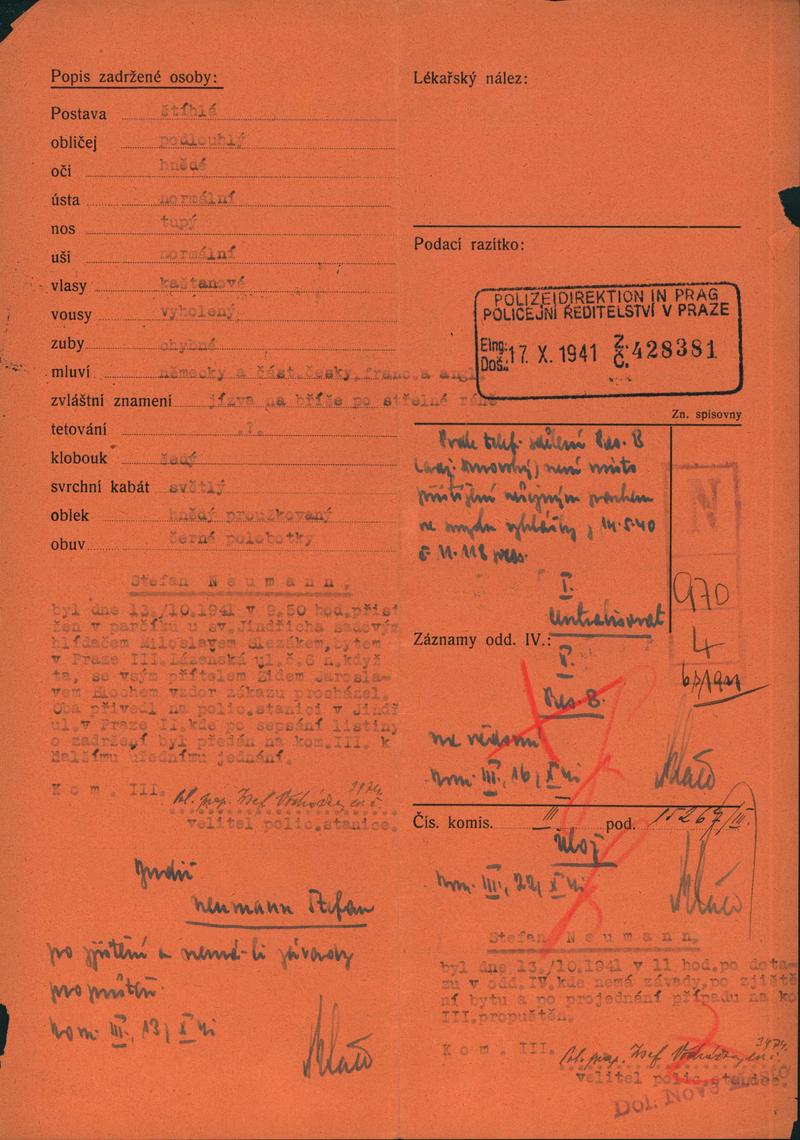 Popis zadržené osoby:
Postava štíhlá
obličej podlouhlý
oči hnědé
ústa normální
nos tupý
uši normální
vlasy kaštanové
vousy vyholený
zuby chybné
mluví německy a část.česky,franc.a angl.
zvláštní znamení jízva na břiše po střelné ráně
tetování .?.
klobouk šedý
svrchní kabát světlý
oblek hnědý proužkovaný
obuv černé polobotky
Stefan Neumann,
byl dne 13./10.1941 v 9.50 hod.přisti
žen v parčíku u sv.Jindřicha sadovým
hlídačem Miloslavem Slezákem,bytem
v Praze III.Lázenská ul.č.6 n.když
ta, se svým přítelem Židem Jarosla-
vem Blochem vzdor zákazu procházel.
Oba přivedl na polic.stanici v Jindř
ul.v Praze II.kde po sepsání listiny
o zadržení byl předán na kom.III. k
dalšímu úřednímu jednání.
Kom. III.
velitel polic.stanice.
Neumann Štefan
po zjištění a nemá-li závady
propustit.
Kom. III, 13/X
Lékařský nález:
Podací razítko:
POLIZEIDIREKTION IN PRAG
POLICEJNÍ ŘEDITELSTVÍ V PRAZE
Eing.: Doš.: 17. X. 1941 Z. Č. 428381
Zn. spisovny
Podle telef. sdělení Pres. B
není
14.5.40
N
I.
Centralisovat
970
4
Záznamy odd. IV.:
Pres. B.
na vědomí
Kom. III, 16/X
Čís. komis. III pod. 15267/III.
Ulož
Kom. III, 22/X
Stefan Neumann,
byl dne 13./10.1941 v 11 hod.po dota-
zu v odd.IV.kde nemá závady,po zjiště
ní bytu a po projednání případu na ko
III.propuštěn.
Kom. III.
velitel polic.stanice.